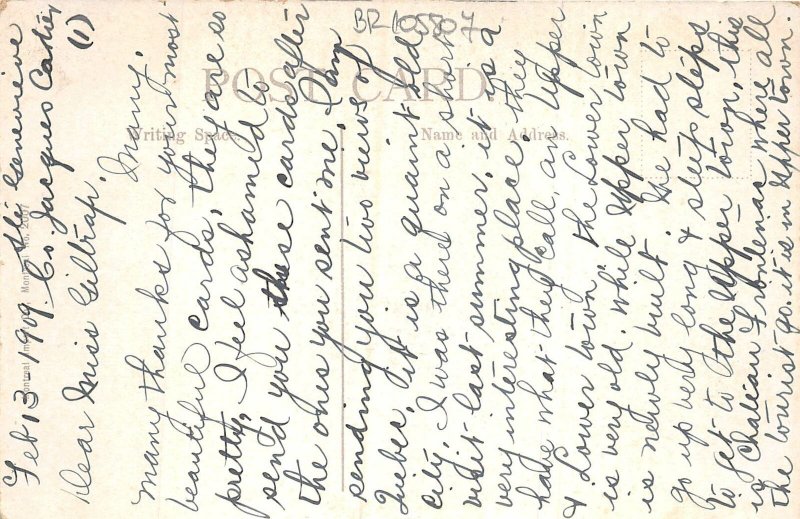 Feb 13-1909. St. Genevieve
Co. Jacques Cartier
(1)
Dear Miss Giltrap,
Many, 
many thanks for your most
beautiful cards, they are so
pretty, I feel ashamed to
send you these cards after
the ones you sent me, I am
sending you two views of
Quebec, it is a quaint old
city, I was there on a short
visit last summer, it is a
very interesting place, they
have what they call, an Upper
& Lower town, the Lower town
is very old, while Upper town
is newly built. We had to
go up very long & steep steps
to get to the Upper town, this
is Chateau Frontenac where all
the tourist go. it is in Upper town.
BR105507
POST CARD.
Writing Space.
Name and Address.